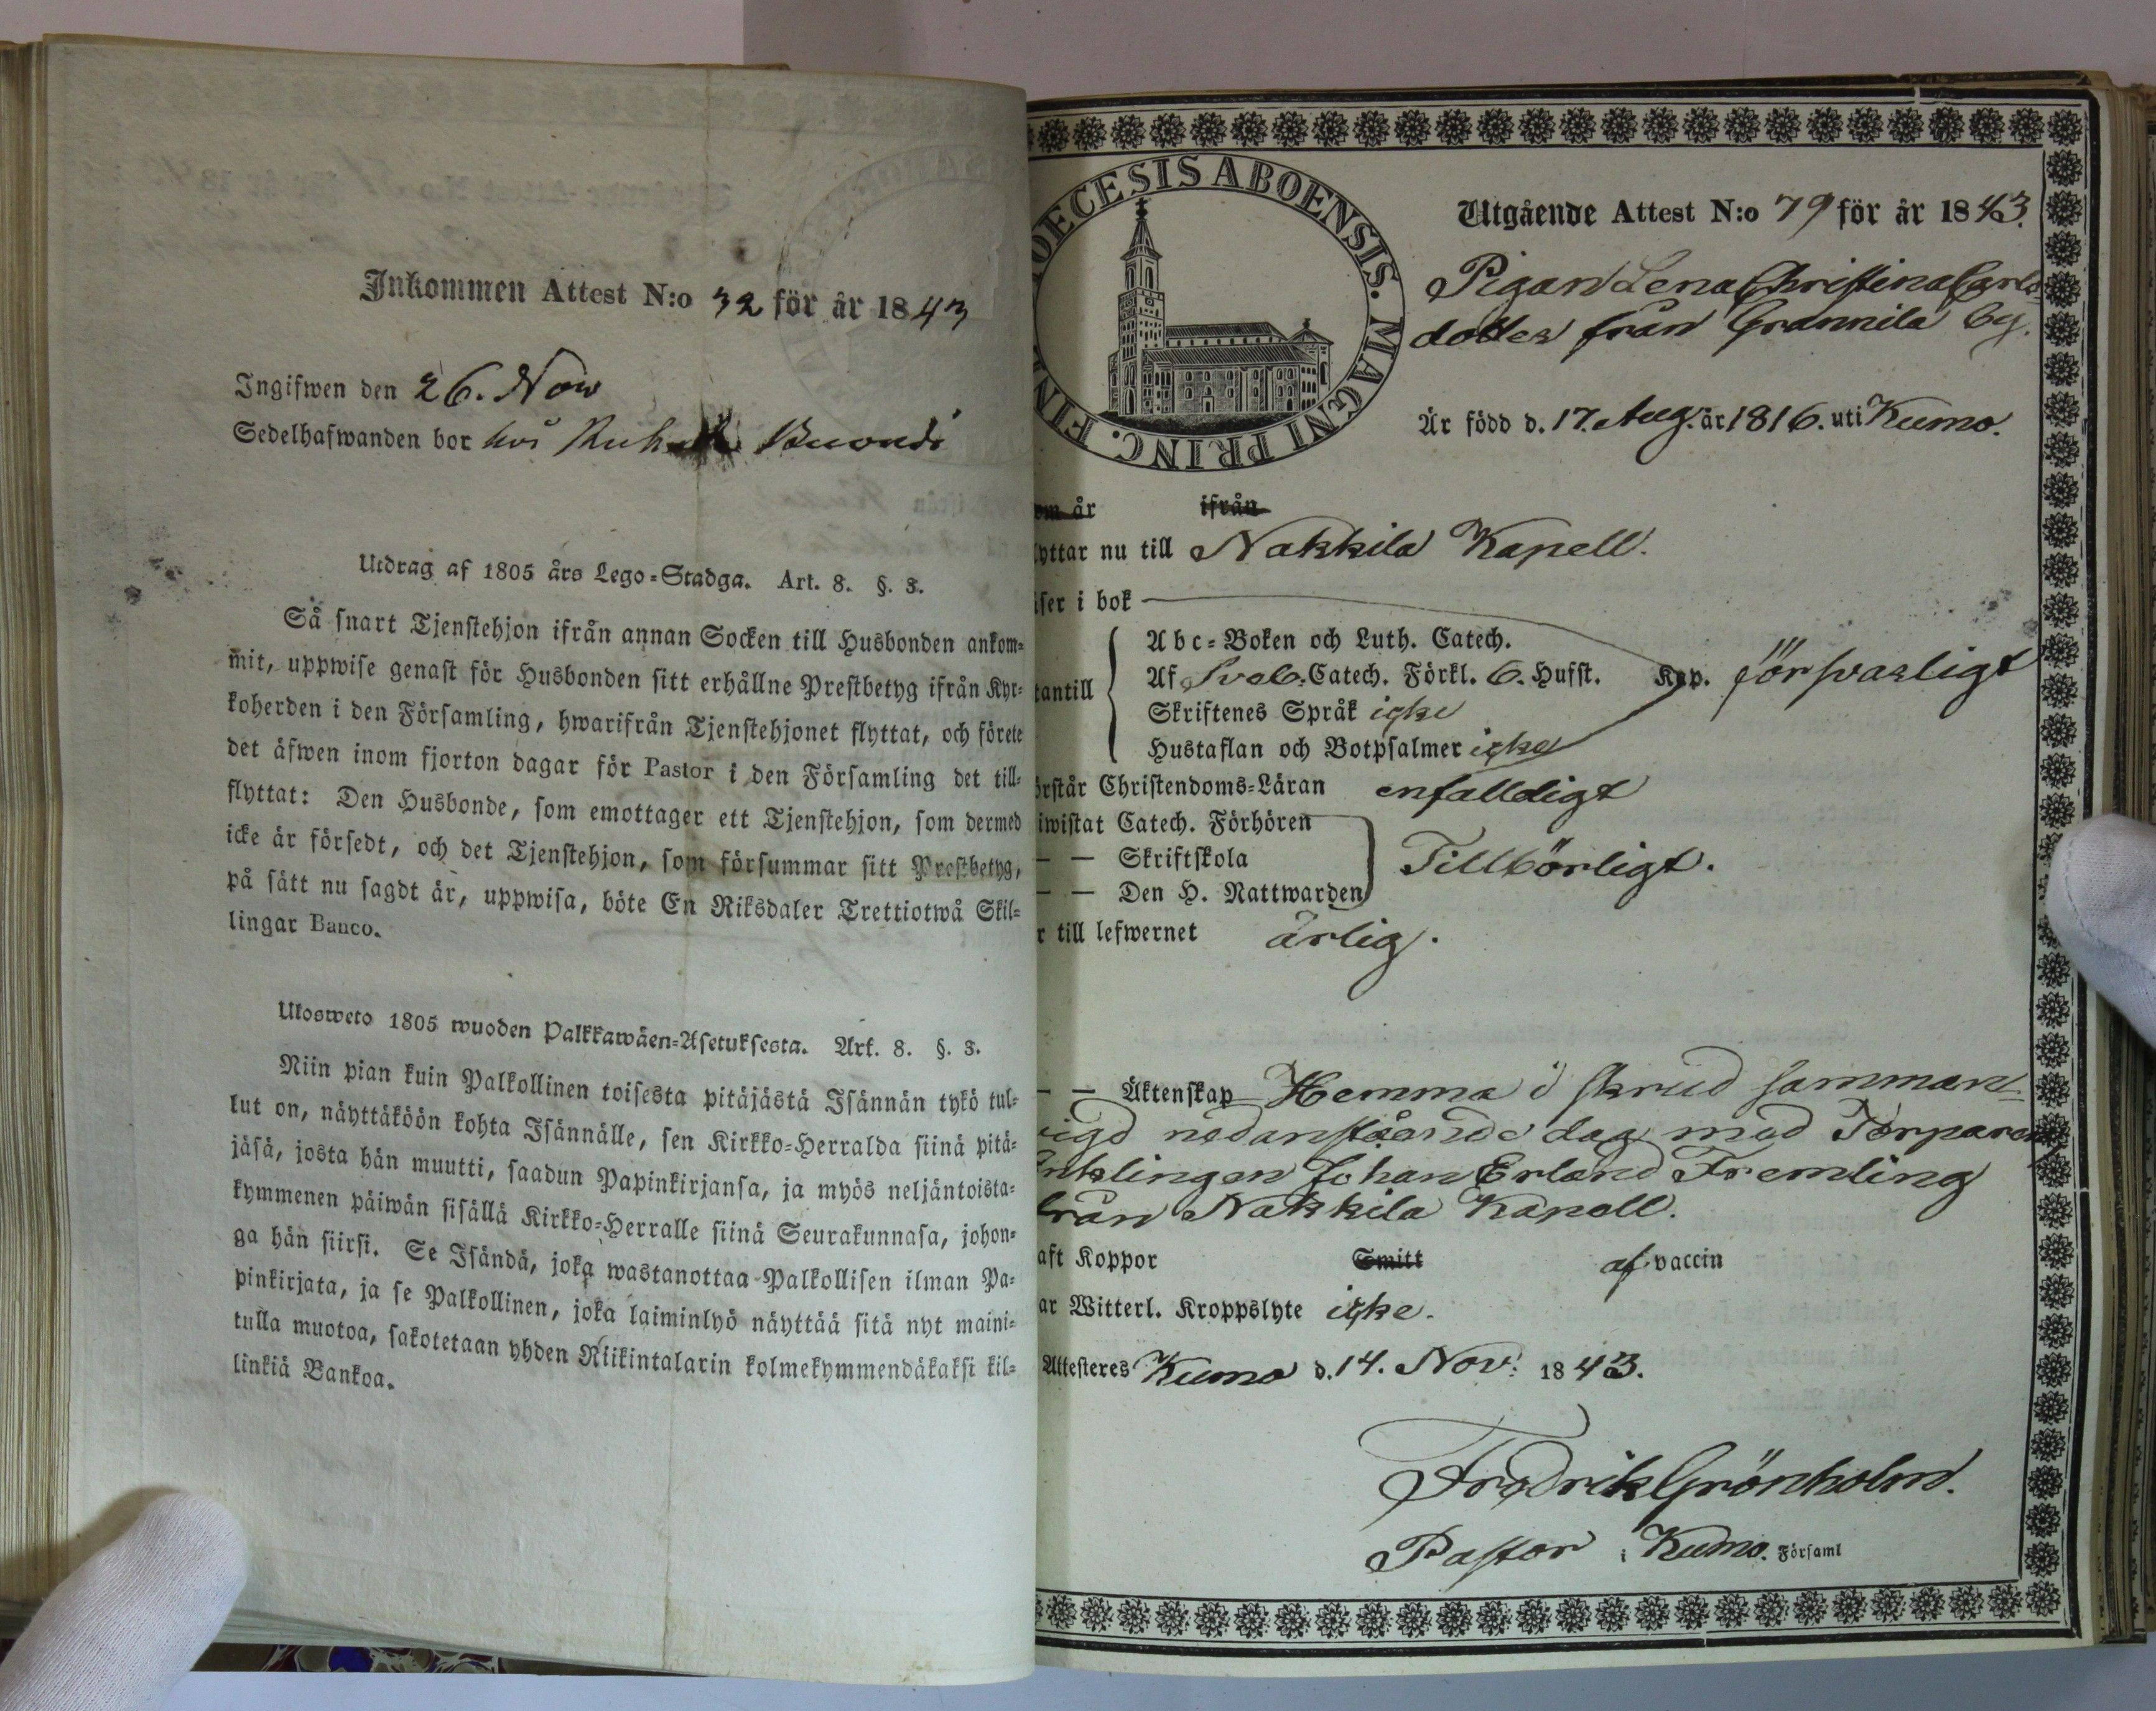 Inkommen Attest N:o 32 för år 1843
Ingifwen den 26. Nov
Sedelhafwanden bor hos
Utdrag af 1805 års Lego-Stadga. Art. 8. §. 3.
Så snart Tjenstehjon ifrån annan Socken till Husbonden ankom-
mit, uppwise genast för Husbonden sitt erhållne Prestbetyg ifrån Kyr-
koherden i den Församling, hwarifrån Tjenstehjonet flyttat, och förete
det äfwen inom fjorton dagar för Pastor i den Församling det till-
flyttat: Den Husbonde, som emottager ett Tjenstehjon, som dermed
icke är försedt, och det Tjenstehjon, som försummar sitt Prestbetyg,
på sätt nu sagdt är, uppwisa, böte En Riksdaler Trettiotwå Skil-
lingar Banco.
Ulosweto 1805 wuoden Palkkawäen-Asetuksesta. Art. 8. §. 3.
Niin pian kuin Palkollinen toisesta pitäjästä Isännän tykö tul-
lut on, näyttäköön kohta Isännälle, sen Kirkko-Herralda siinä pitä-
jäsä, josta hän muutti, saadun Papinkirjansa, ja myös neljäntoista-
kymmenen päiwän sisällä Kirkko-Herralle siinä Seurakunnasa, johon-
ga hän siirsi. Se Isändä, joka wastanottaa Palkollisen ilman Pa-
pinkirjata, ja se Palkollinen, joka laiminlyö näyttää sitä nyt maini-
tulla muotoa, sakotetaan yhden Riikintalarin kolmekymmendäkaksi kil-
linkiä Bankoa.
OECESIS ABOENSIS. MAGNI PRINC. FIN
Utgående Attest N:o 79 för år 1843.
Pigan Lena Christina Carls-
dotter från Grannila by.
Är född d. 17. Aug. år 1816. uti Kumo.
om år ifrån
lyttar nu till Nakkila Kapell.
äser i bok
Abc-Boken och Luth. Catech.
tantill Af Sveb. Catech. Förkl. 6. Hufst. Kap. försvarligt
Skriftenes Språk icke
Hustaflan och Botpsalmer icke
örstår Christendoms-Läran enfalldigt
iwistat Catech. Förhören
— — Skriftskola Tillbörligt.
— — Den H. Nattwarden
r till lefwernet ärlig.
— — Äktenskap Hemma i skrud samman-
vigd nedanstående dag med Torparen
Enklingen Johan Erland Fremling
från Nakkila Kapell.
aft Koppor Smitt af vaccin
ar Witterl. Kroppslyte icke.
Attesteres Kumo d. 14. Nov. 1843.
Fredrik Grönholm.
Pastor i Kumo. Församl